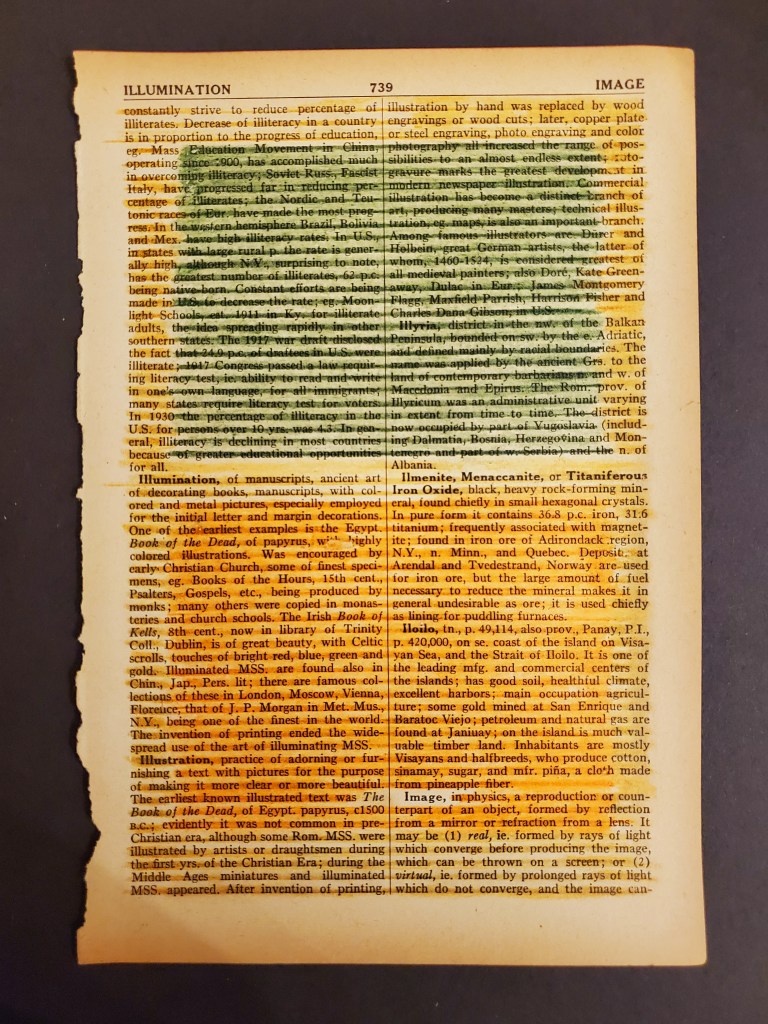 ILLUMINATION 739 IMAGE
constantly strive to reduce percentage of
illiterates. Decrease of illiteracy in a country
is in proportion to the progress of education,
eg. Mass Education Movement in China,
operating since 1900, has accomplished much
in overcoming illiteracy; Soviet Russ., Fascist
Italy, have progressed far in reducing per-
centage of illiterates; the Nordic and Teu-
tonic races of Eur. have made the most prog-
ress. In the western hemisphere Brazil, Bolivia
and Mex. have high illiteracy rates. In U.S.,
in states with large rural p. the rate is gener-
ally high, although N.Y., surprising to note,
has the greatest number of illiterates, 62 p.c.
being native-born. Constant efforts are being
made in U.S. to decrease the rate; eg. Moon-
light Schools, est. 1911 in Ky. for illiterate
adults, the idea spreading rapidly in other
southern states. The 1917 war draft disclosed
the fact that 24.9 p.c. of draftees in U.S. were
illiterate; 1917 Congress passed a law requir-
ing literacy test, ie. ability to read and write
in one's own language, for all immigrants;
many states require literacy test for voters.
In 1930 the percentage of illiteracy in the
U.S. for persons over 10 yrs. was 4.3. In gen-
eral, illiteracy is declining in most countries
because of greater educational opportunities
for all.
Illumination, of manuscripts, ancient art
of decorating books, manuscripts, with col-
ored and metal pictures, especially employed
for the initial letter and margin decorations.
One of the earliest examples is the Egypt.
Book of the Dead, of papyrus, with highly
colored illustrations. Was encouraged by
early Christian Church, some of finest speci-
mens, eg. Books of the Hours, 15th cent.,
Psalters, Gospels, etc., being produced by
monks; many others were copied in monas-
teries and church schools. The Irish Book of
Kells, 8th cent., now in library of Trinity
Coll., Dublin, is of great beauty, with Celtic
scrolls, touches of bright red, blue, green and
gold. Illuminated MSS. are found also in
Chin., Jap., Pers. lit; there are famous col-
lections of these in London, Moscow, Vienna,
Florence, that of J. P. Morgan in Met. Mus.,
N.Y., being one of the finest in the world.
The invention of printing ended the wide-
spread use of the art of illuminating MSS.
Illustration, practice of adorning or fur-
nishing a text with pictures for the purpose
of making it more clear or more beautiful.
The earliest known illustrated text was The
Book of the Dead, of Egypt. papyrus, c1500
B.C.; evidently it was not common in pre-
Christian era, although some Rom. MSS. were
illustrated by artists or draughtsmen during
the first yrs. of the Christian Era; during the
Middle Ages miniatures and illuminated
MSS. appeared. After invention of printing,
illustration by hand was replaced by wood
engravings or wood cuts; later, copper plate
or steel engraving, photo engraving and color
photography all increased the range of pos-
sibilities to an almost endless extent; roto-
gravure marks the greatest development in
modern newspaper illustration. Commercial
illustration has become a distinct branch of
art, producing many masters; technical illus-
tration, eg. maps, is also an important branch.
Among famous illustrators are Dürer and
Holbein, great German artists, the latter of
whom, 1460-1524, is considered greatest of
all medieval painters; also Doré, Kate Green-
away, Dulac in Eur.; James Montgomery
Flagg, Maxfield Parrish, Harrison Fisher and
Charles Dana Gibson, in U.S.
Illyria, district in the nw. of the Balkan
Peninsula, bounded on sw. by the e. Adriatic,
and defined mainly by racial boundaries. The
name was applied by the ancient Grs. to the
land of contemporary barbarians n. and w. of
Macedonia and Epirus. The Rom. prov. of
Illyricum was an administrative unit varying
in extent from time to time. The district is
now occupied by part of Yugoslavia (includ-
ing Dalmatia, Bosnia, Herzegovina and Mon-
tenegro and part of w. Serbia) and the n. of
Albania.
Ilmenite, Menaccanite, or Titaniferous
Iron Oxide, black, heavy rock-forming min-
eral, found chiefly in small hexagonal crystals.
In pure form it contains 36.8 p.c. iron, 31.6
titanium; frequently associated with magnet-
ite; found in iron ore of Adirondack region,
N.Y., n. Minn., and Quebec. Deposits at
Arendal and Tvedestrand, Norway are used
for iron ore, but the large amount of fuel
necessary to reduce the mineral makes it in
general undesirable as ore; it is used chiefly
as lining for puddling furnaces.
Iloilo, tn., p. 49,114, also prov., Panay, P.I.,
p. 420,000, on se. coast of the island on Visa-
yan Sea, and the Strait of Iloilo. It is one of
the leading mfg. and commercial centers of
the islands; has good soil, healthful climate,
excellent harbors; main occupation agricul-
ture; some gold mined at San Enrique and
Baratoc Viejo; petroleum and natural gas are
found at Janiuay; on the island is much val-
uable timber land. Inhabitants are mostly
Visayans and halfbreeds, who produce cotton,
sinamay, sugar, and mfr. piña, a cloth made
from pineapple fiber.
Image, in physics, a reproduction or coun-
terpart of an object, formed by reflection
from a mirror or refraction from a lens. It
may be (1) real, ie. formed by rays of light
which converge before producing the image,
which can be thrown on a screen; or (2)
virtual, ie. formed by prolonged rays of light
which do not converge, and the image can-